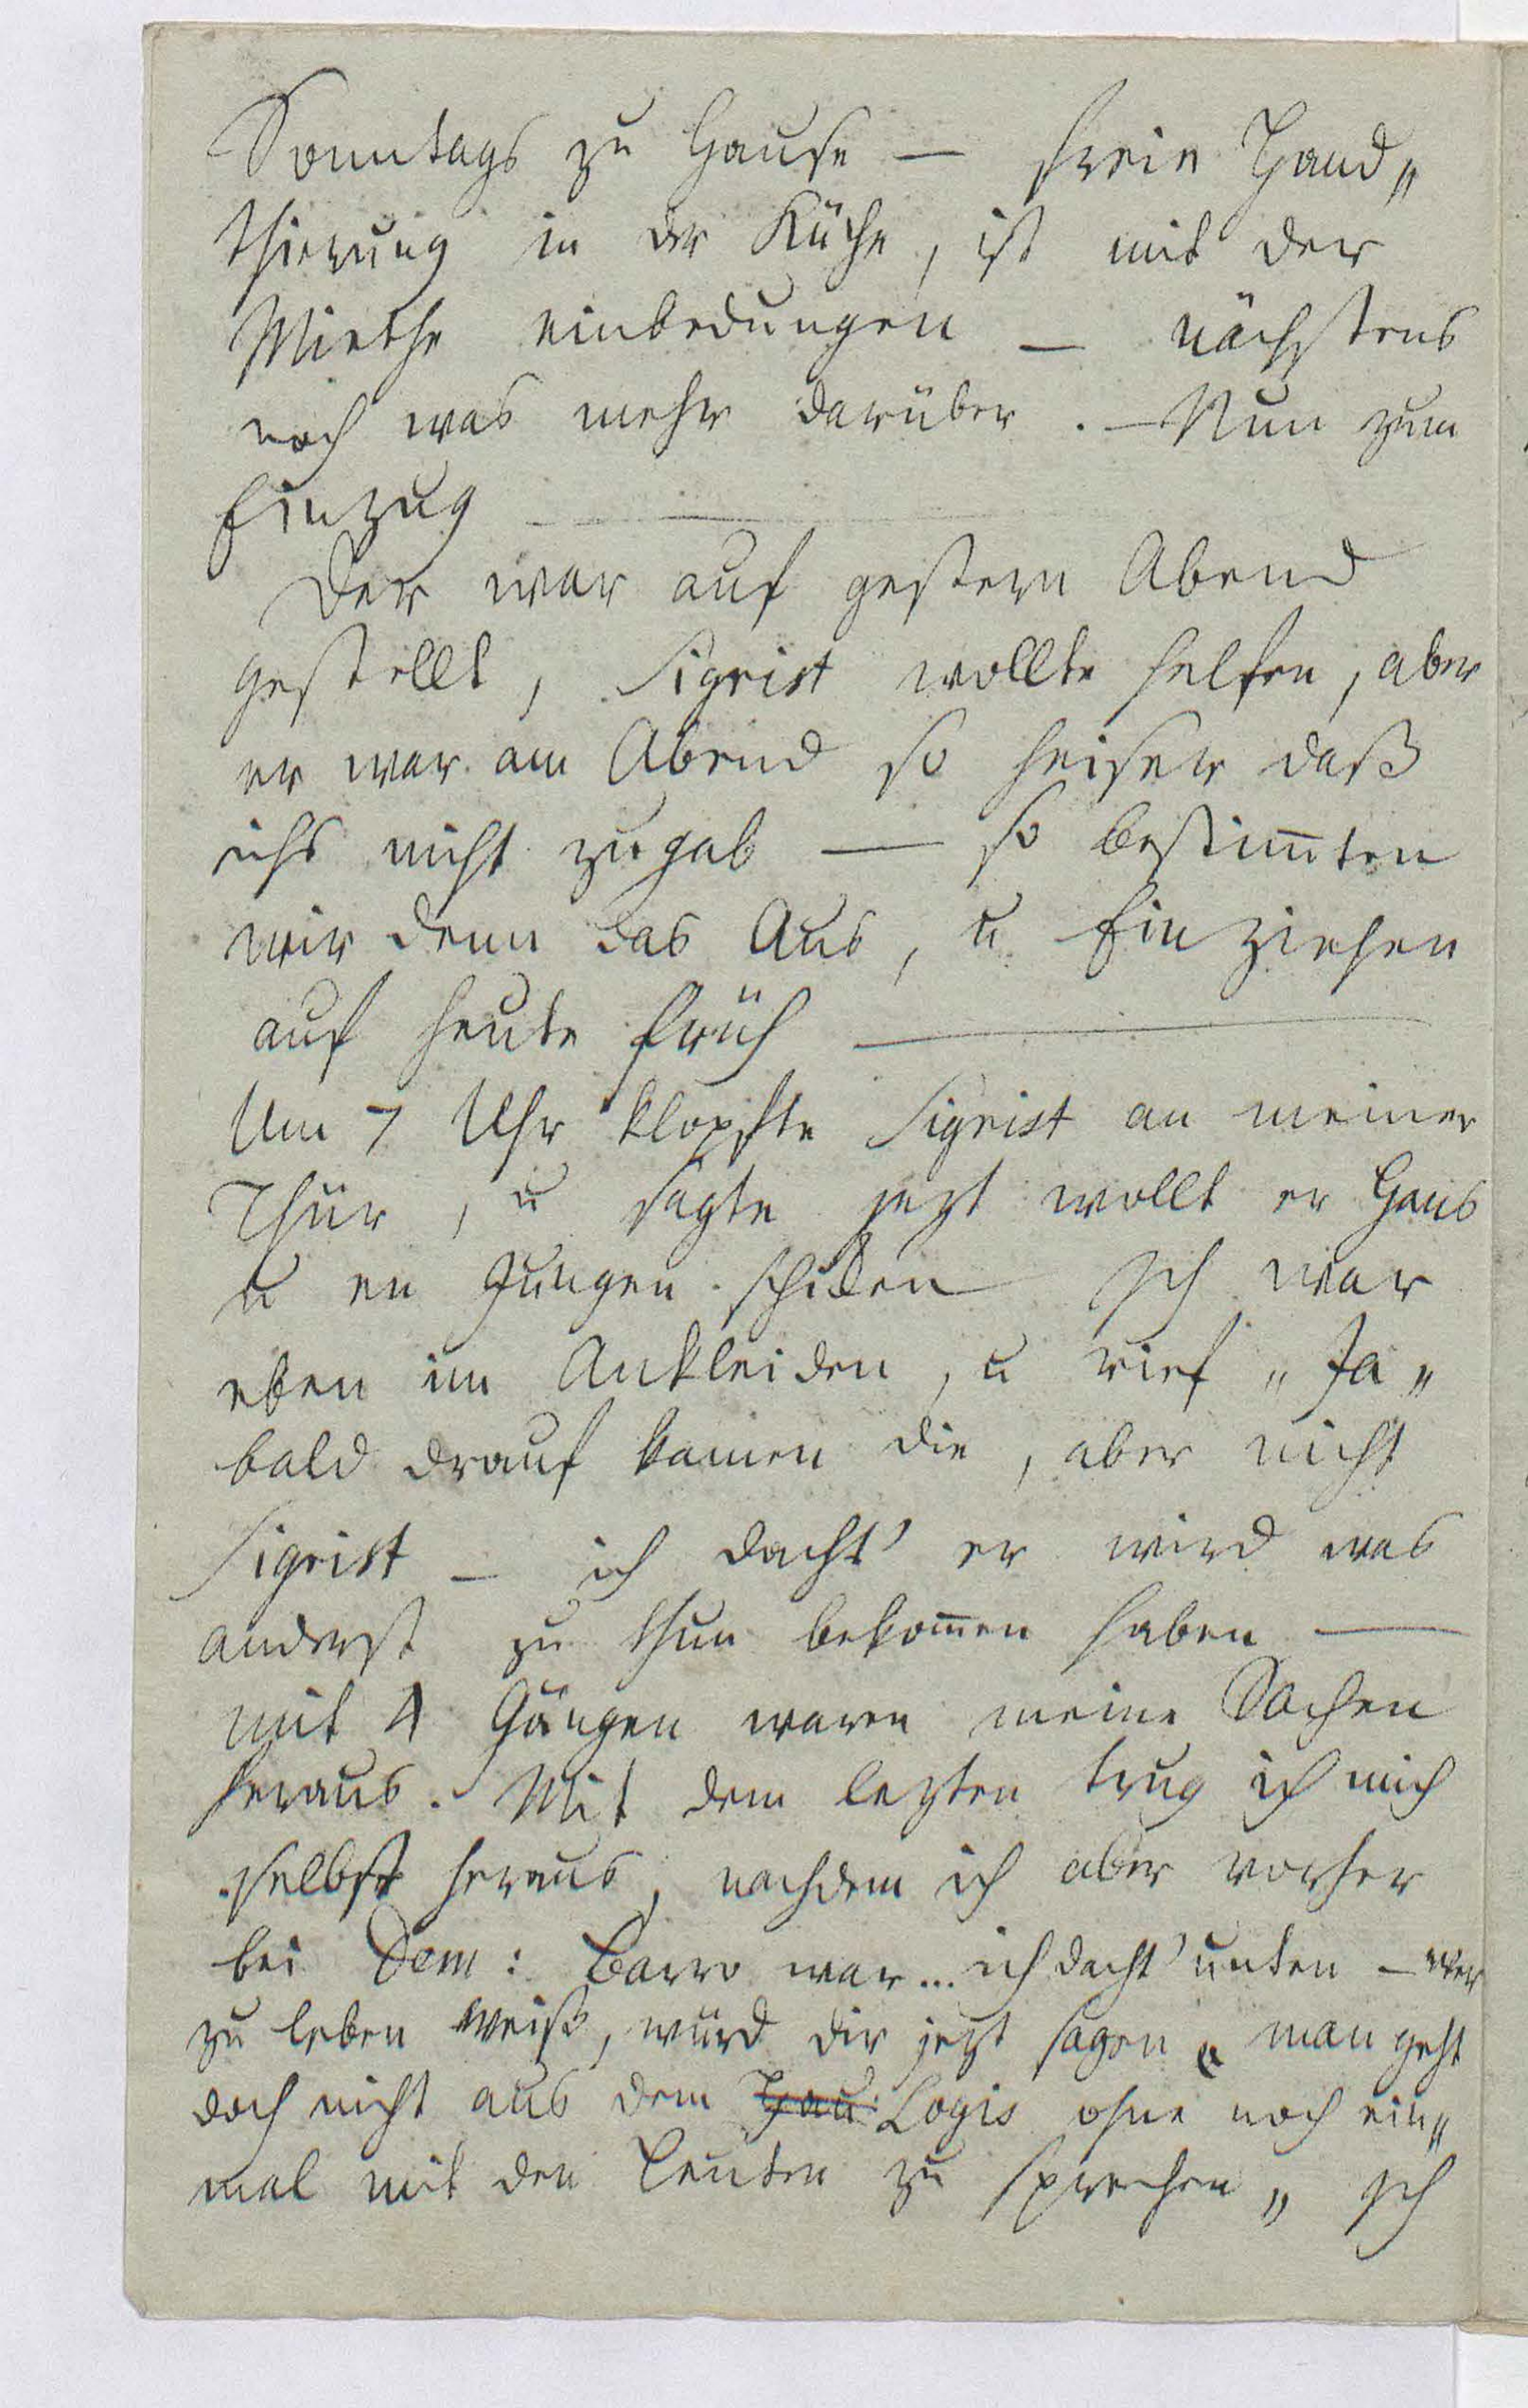 Sonntags zu Hause — freie Hand„
thierung in der Küche, ist mit der
Miethe einbedungen — nächstens
noch was mehr darüber. — Nun zum
Einzug — —
Der war auf gestern Abend
gestellt, Sigrist wollte helfen, aber
er war am Abend so heiser daß
ichs nicht zugab — so bestim̄ten
wir denn das Aus, u Einziehen
auf heute früh —
Um 7 Uhr klopfte Sigrist an meiner
Thür, u sagte jezt wollt er Hans
u en Jungen schiken Ich war
eben im Ankleiden, u rief „Ja„
bald drauf kamen die, aber nicht
Sigrist — ich dacht' er wird was
anderst zu thun bekom̄en haben —
mit 4 Gängen waren meine Sachen
heraus. Mit dem lezten trug ich mich
selbst heraus, nachdem ich aber vorher
bei Dem: Barro war... ich dacht' unten — wer
zu leben weiß, würd dir jezt sagen „ man geht
doch nicht aus dem Hau: Logis ohne noch ein„
mal mit den Leuten zu sprechen„ Ich